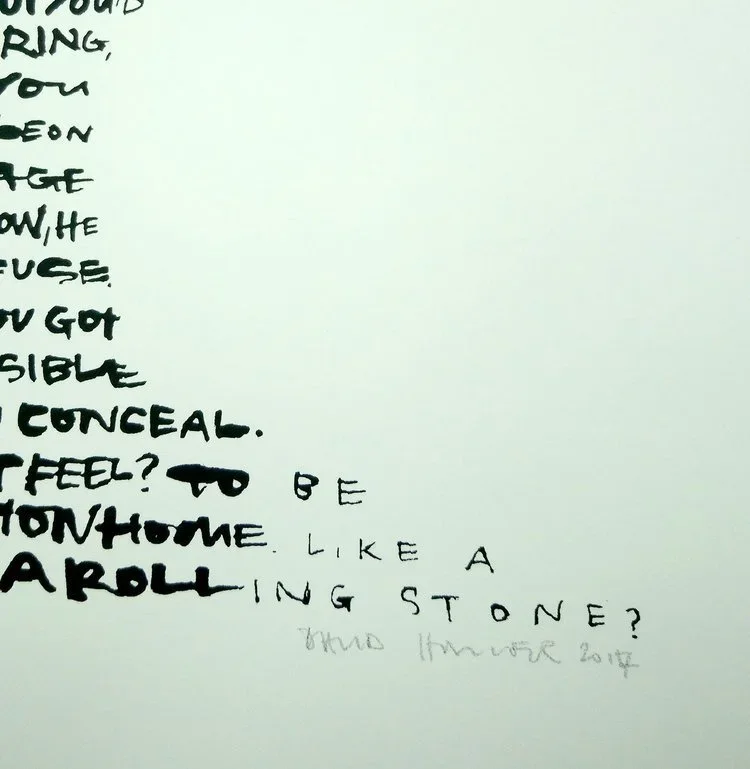 RING,
YOU
EON
AGE
OW, HE
FUSE.
OU GOT
SIBLE
CONCEAL.
T FEEL? TO BE
ON HOME. LIKE A
A ROLLING STONE?
DAVID